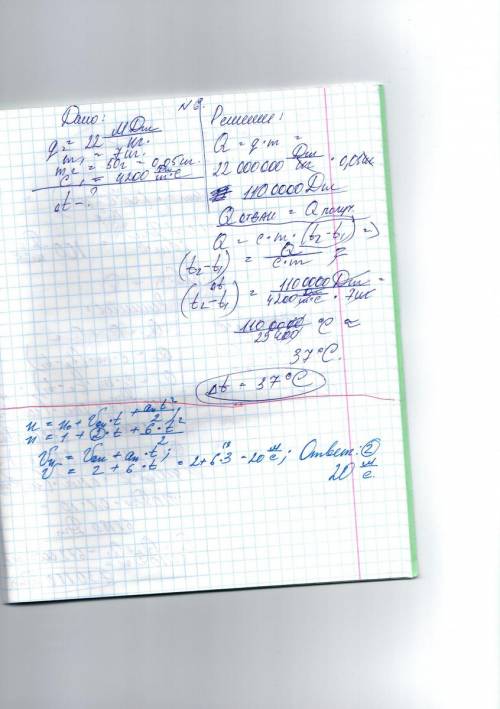 Дано:
q₂ = 22 МДж/кг.
m₁ = 7 кг.
m₂ = 50г = 0,05кг.
c₁ = 4200 Дж/кг·°C
Δt - ?
№ 2.
Решение:
Q = q·m =
22 000 000 Дж/кг · 0,05кг
1100000 Дж
Q отдан = Q получ.
Q = c·m·(t₂-t₁) ⇒
(t₂-t₁) = Q/c·m ;
Δt
(t₂-t₁) = 1100000 Дж / 4200 Дж/кг·°C · 7кг =
1100000/29400 °C ≈
37°C.
Δt = 37°C
x = x₀ + V₀ₓ·t + aₓt²/2
x = 1 + 2·t + 6·t²/2
Vₓ = V₀ₓ + aₓ·t;
V = 2 + 6·t = 2+6·3 = 20 м/с; Ответ: 2
20 м/с.